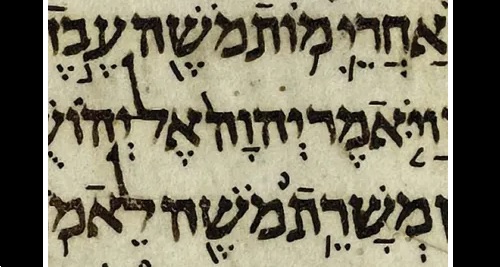 אַחֲרֵי מוֹת מֹשֶׁה עֶבֶד
וַיֹּאמֶר יְהוָה אֶל יְהוֹשֻׁ
ן מְשָׁרֵת מֹשֶׁה לֵאמ